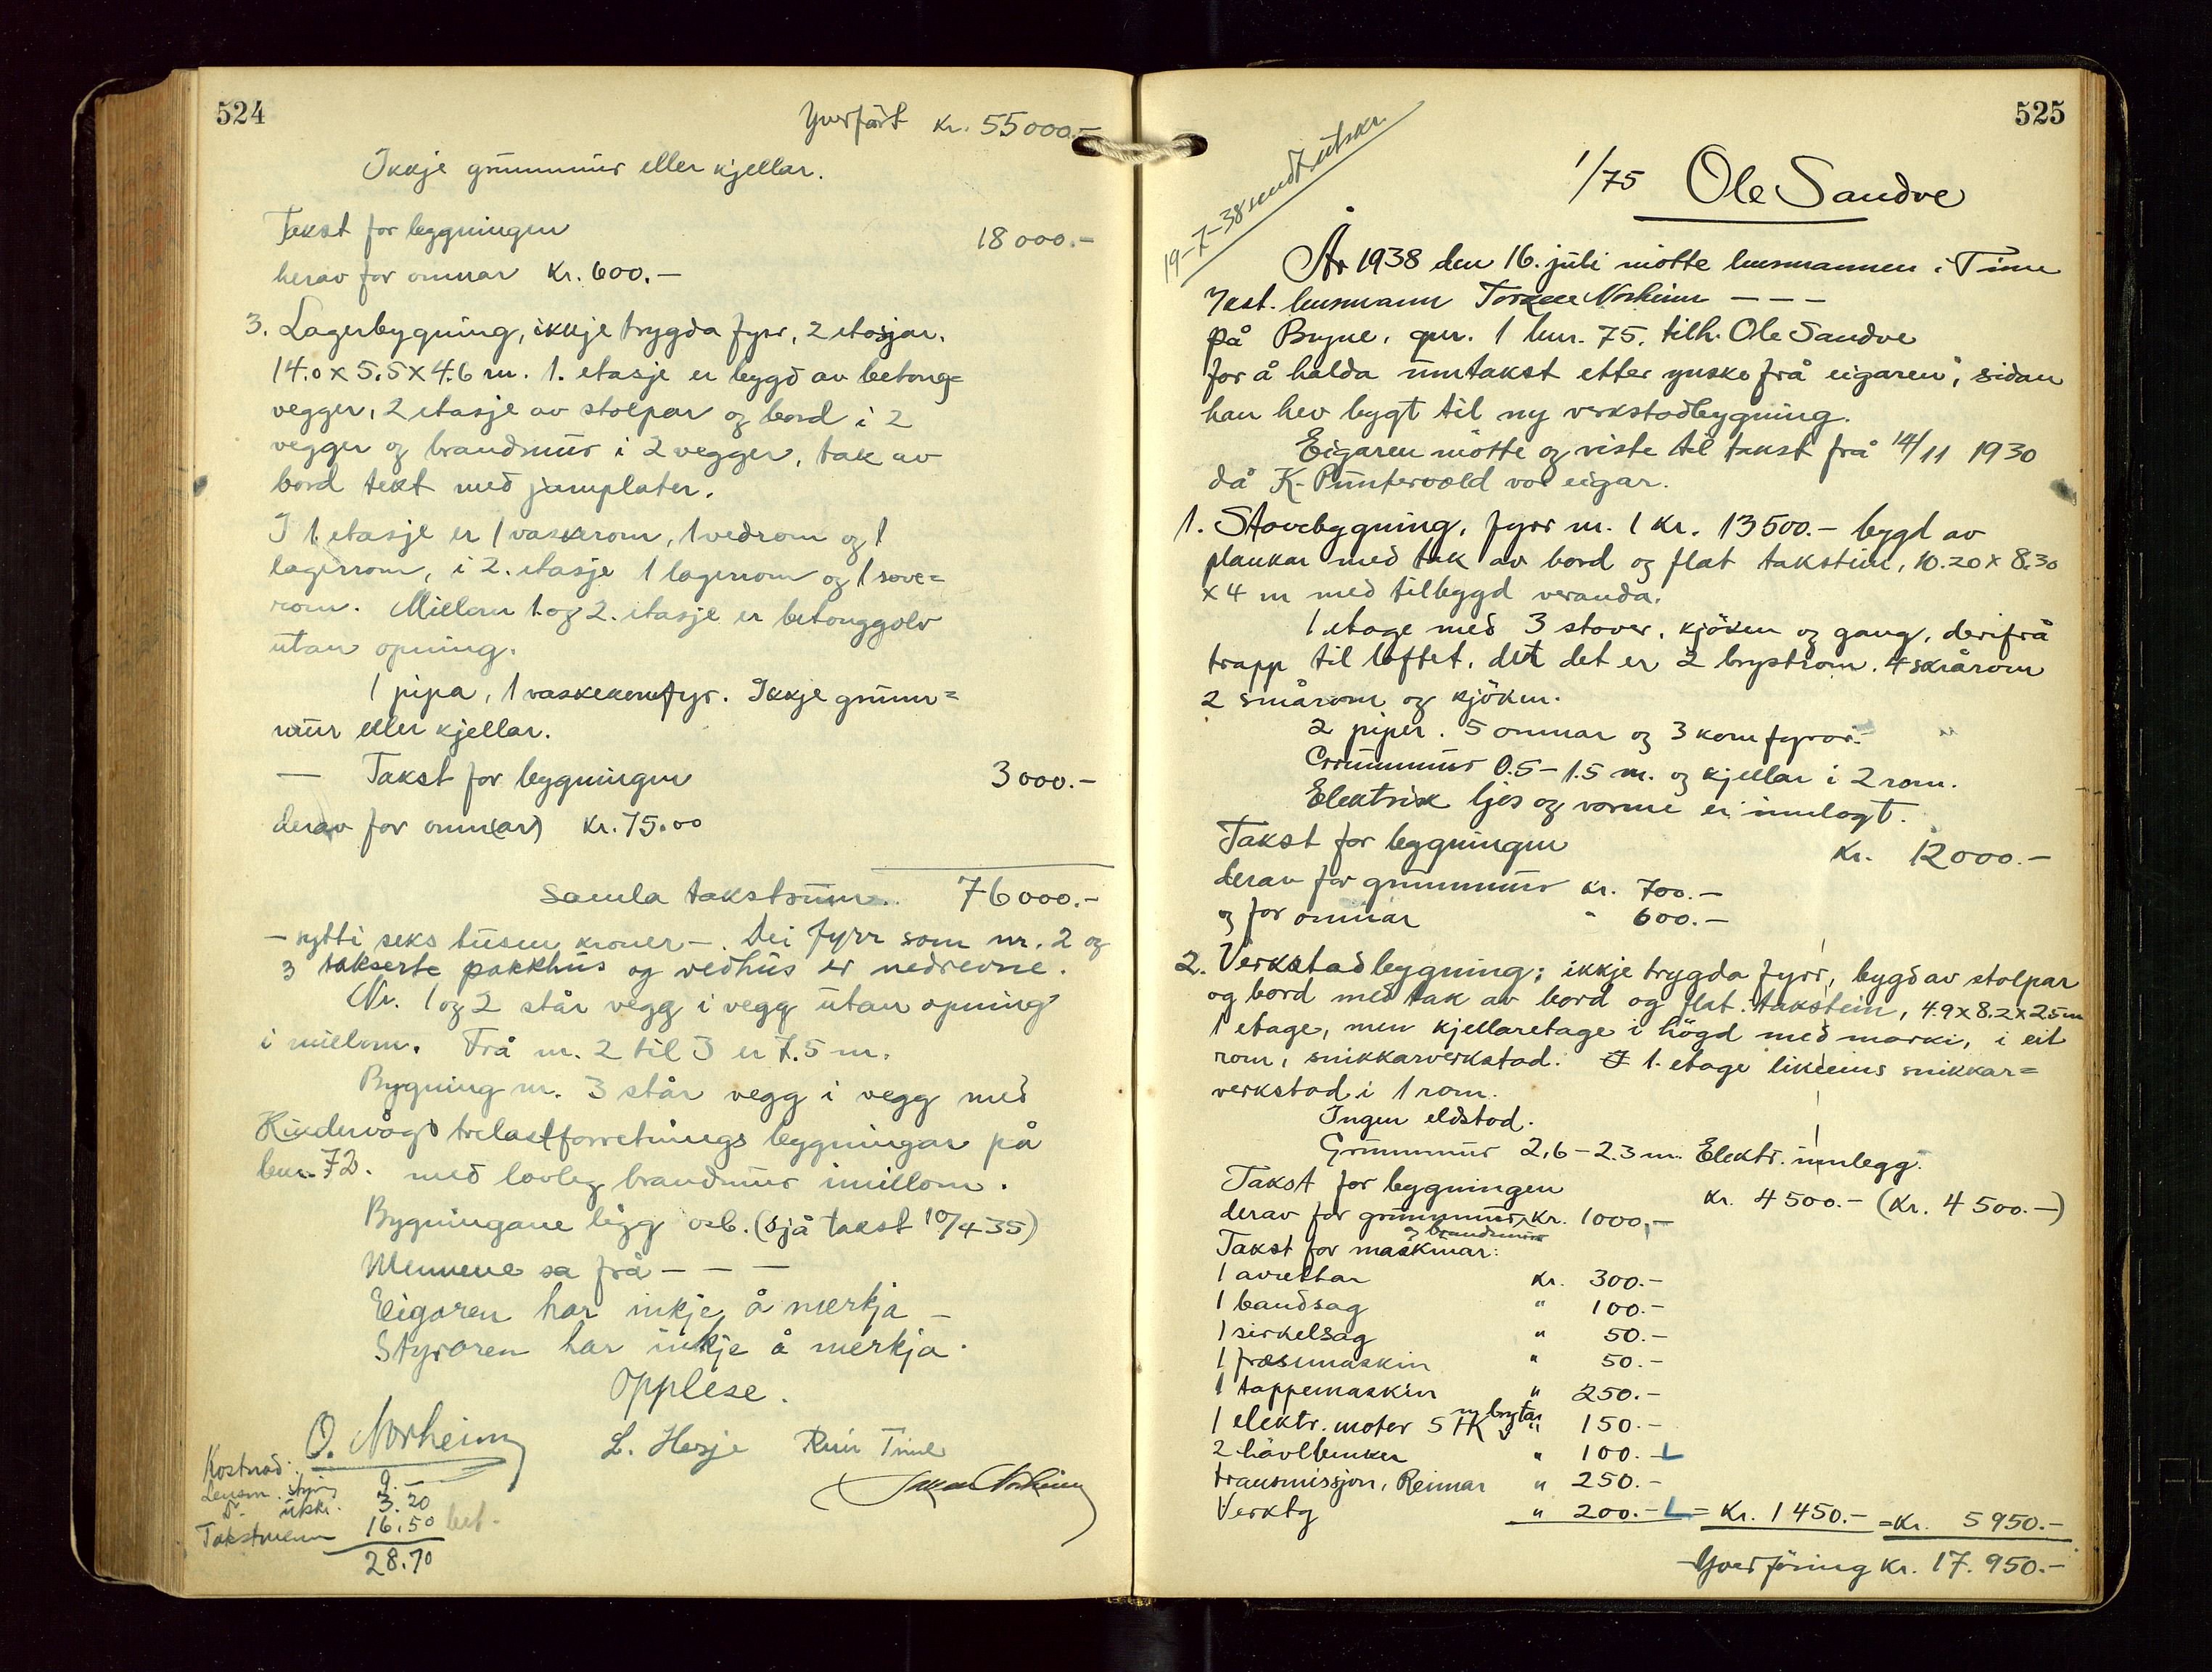 524
Yverført kr. 55000.-
Ikkje grunnmur eller kjellar.
Takst for byggningen 18000.-
herav for omnar Kr. 600.-
3. Lagerbygning, ikkje trygda fyrr, 2 etasjar.
14.0 x 5.5 x 4.6 m. 1. etasje er bygd av betong=
vegger, 2 etasje av stolpar og bord i 2
vegger og brandmur i 2 vegger, tak av
bord tekt med jarnplater.
I 1 etasje er 1 vaskerom, 1 vedrom og 1
lagerrom, i 2. etasje 1 lagerrom og 1 sove=
rom. Millom 1. og 2. etasje er betonggolv
utan opning.
1 pipa, 1 vaskekomfyr. Ikkje grunn=
mur eller kjellar.
— Takst for bygningen 3000.-
derav for omn(ar) Kr. 75.00
Samla takstsum.. 76000.-
- sytti seks tusen kroner -. Dei fyrr som nr. 2 og
3 takserte pakkhus og vedhus er nedrevne.
Nr. 1 og 2 står vegg i vegg utan opning
i millom. Frå nr. 2 til 3 er 7.5 m.
Bygning nr. 3 står vegg i vegg med
Kindervågs trelastforretnings bygningar på
bnr. 72. med lovleg brandmur imillom.
Bygningane ligg osb. (sjå takst 10/4 35)
Mennene sa frå - - -
Eigaren har inkje å merkja -
Styraren har inkje å merkja.
Opplese.
O. Norheim L. Hesje Time
Kostnad:
Lensm. styring 9.-
D- utskr. 3.20
Takstmenn 16.50 bet.
28.70
525
19-7-38 sendt utskr.
1/75 Ole Sandve
År 1938 den 16. juli møtte lensmannen i Time
Norheim - - -
på Bryne, gnr. 1 bnr. 75. tilh. Ole Sandve
for å halda umtakst etter ynske frå eigaren, sidan
han hev bygt til ny verkstadbygning.
Eigaren møtte og viste til takst frå 14/11 1930
då K. Puntervold var eigar.
1. Stovebygning, fyrr nr. 1 kr. 13500.- bygd av
plankar med tak av bord og flat takstein, 10.20 x 8.30
x 4 m med tilbygd veranda.
1 etage med 3 stover, kjöken og gang, derifrå
trapp til loftet, der det er 2 brystrom. 4 skrårom
2 smårom og kjöken.
2 piper. 5 omnar og 3 komfyrar.
Grunnmur 0.5 - 1.5 m. og kjellar i 2 rom.
Elektrisk ljos og varme er innlagt.
Takst for byggningen Kr. 12000.-
derav for grunnmur kr. 700.-
og for omnar " 600.-
2. Verkstadbygning; ikkje trygda fyrr, bygd av stolpar
og bord med tak av bord og flat takstein, 4.9 x 8.2 x 2.5 m
1 etage, men kjellaretage i högd med marki, i eit
rom, snikkarverkstad. I 1. etage likeeins snikkar=
verkstad i 1 rom.
Ingen eldstad.
Grunnmur 2.6 - 2.3 m. Elektr. innlegg.
Takst for bygningen kr. 4500.- (kr. 4500.-)
derav for grunnmur kr. 1000,-
og brandmur
Takst for maskinar:
1 avrettar Kr. 300.-
1 bandsag " 100.-
1 sirkelsag " 50.-
1 fræsemaskin " 50.-
1 tappemaskin " 250.-
1 elektr. motor 5 HK m brytar " 150.-
2 hövlbenker " 100.- L
transmissjon, Reimar " 250.-
Verktg " 200.- L = Kr. 1450.- = Kr. 5950.-
Yverföring Kr. 17.950.-